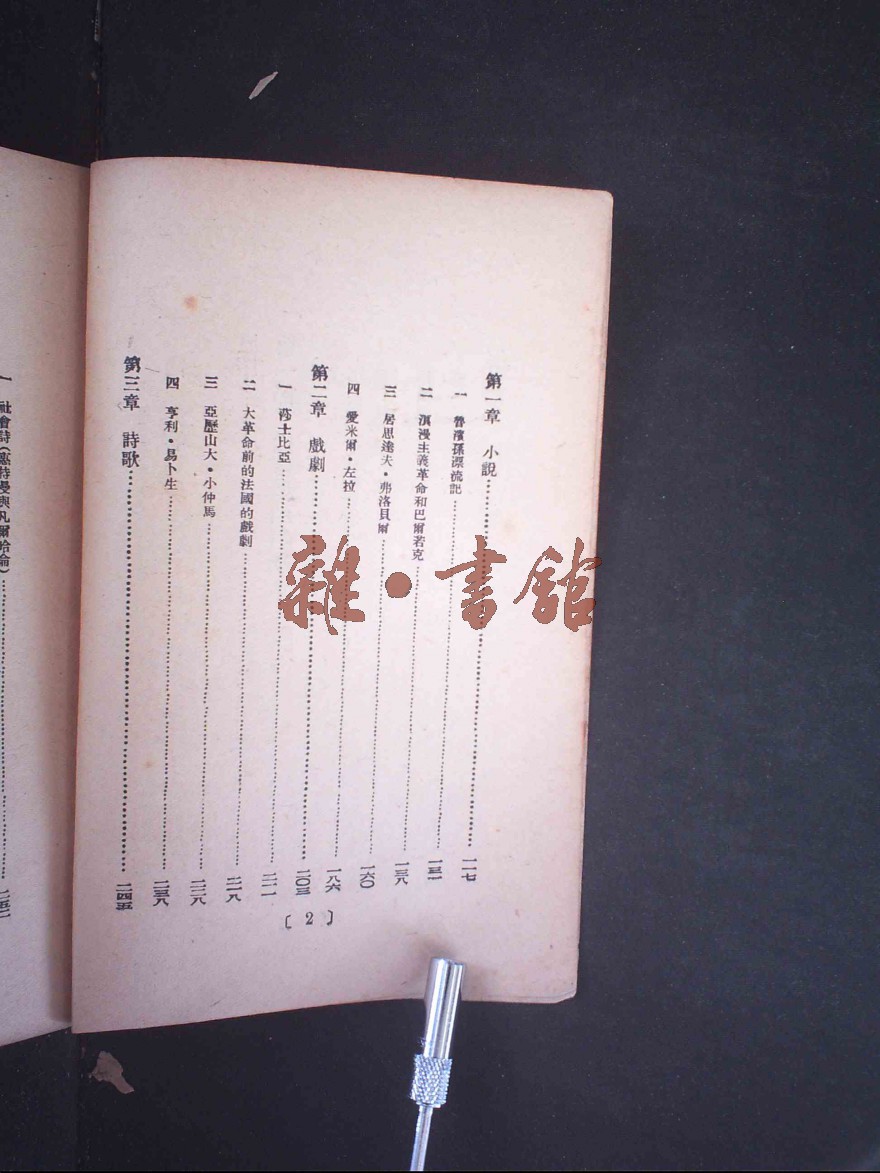 第一章 小說 一一七
一 魯濱孫漂流記 一三一
二 浪漫主義革命和巴爾若克 一三八
三 居思達夫・弗洛貝爾 一六〇
四 愛米爾・左拉 一八六
第二章 戲劇 二〇三
一 莎士比亞 二一一
二 大革命前的法國的戲劇 二一八
三 亞歷山大・小仲馬 二二八
四 亨利・易卜生 二三八
第三章 詩歌 二四五
〔2〕
一 社會詩(惠特曼與凡爾哈侖) 二五二
雜・書館